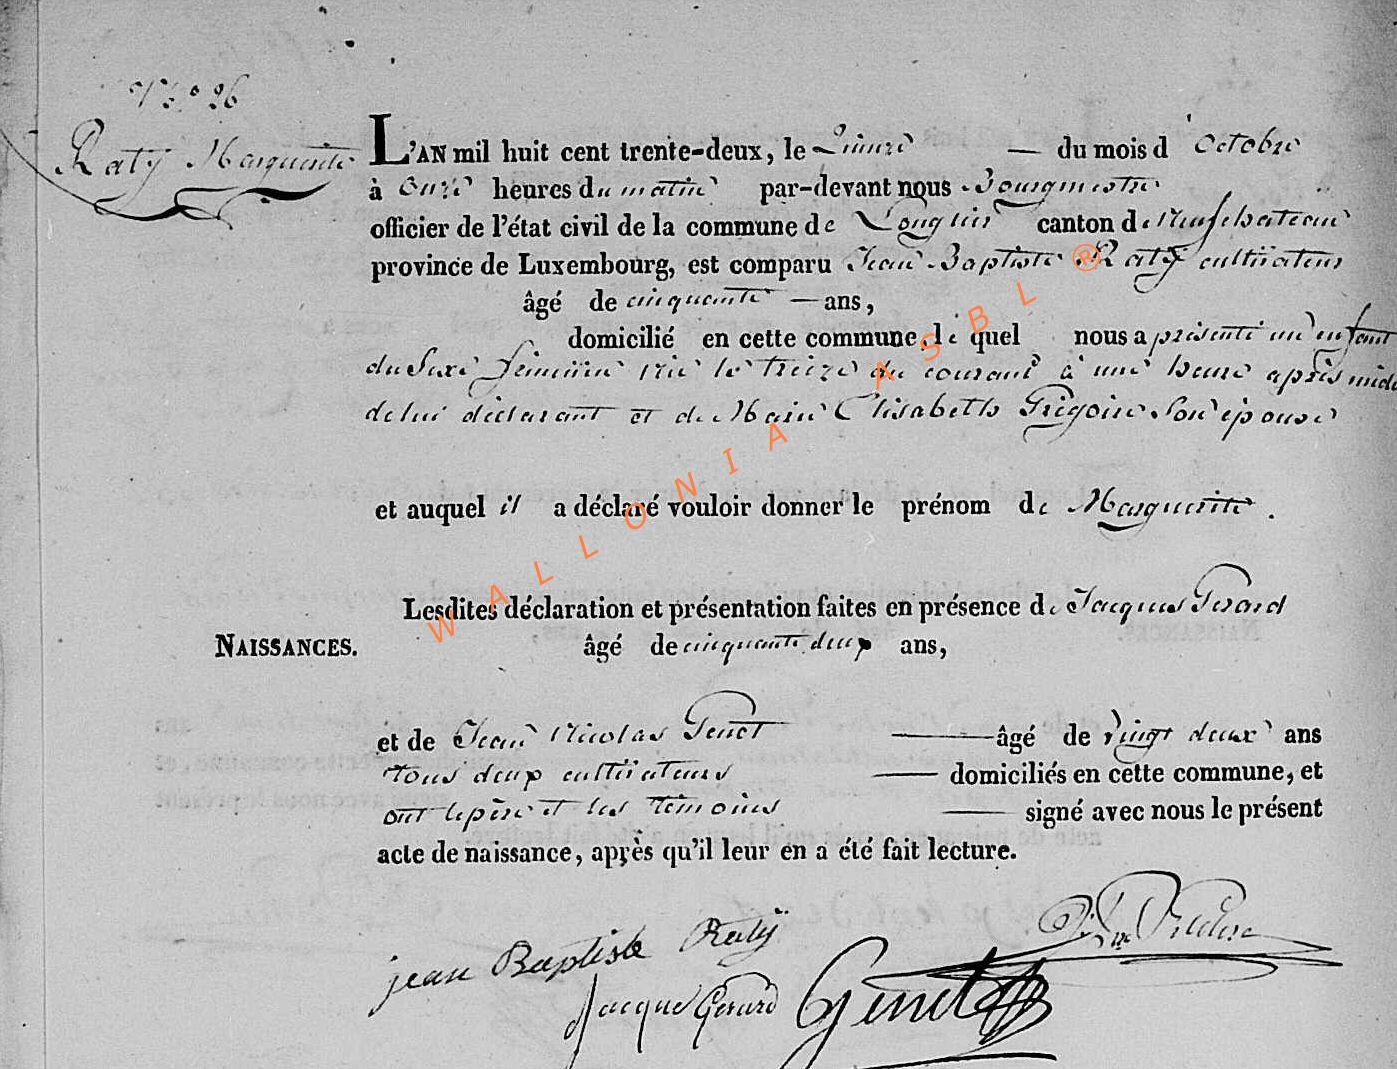 N.° 26
Raty Marguerite
L'AN mil huit cent trente-deux, le Quinze — du mois d'Octobre
à onze heures du matin par-devant nous Bourgmestre
officier de l'état civil de la commune de Longlier canton de Neufchateau
province de Luxembourg, est comparu Jean Baptiste Raty cultivateur
âgé de cinquante — ans,
domicilié en cette commune, le quel nous a présenté un enfant
du Sexe féminin né le treize du courant à une heure après midi
de lui déclarant et de Marie Elisabeth Grégoire Son épouse
et auquel il a déclaré vouloir donner le prénom de Marguerite.
Lesdites déclaration et présentation faites en présence de Jacques Gerard
NAISSANCES.
âgé de cinquante deux ans,
et de Jean Nicolas Genet — âgé de vingt deux ans
tous deux cultivateurs — domiciliés en cette commune, et
ont le père et les témoins — signé avec nous le présent
acte de naissance, après qu'il leur en a été fait lecture.
jean Baptiste Raty
Jacque Gerard
Genet
WALLONIA ASBL ®